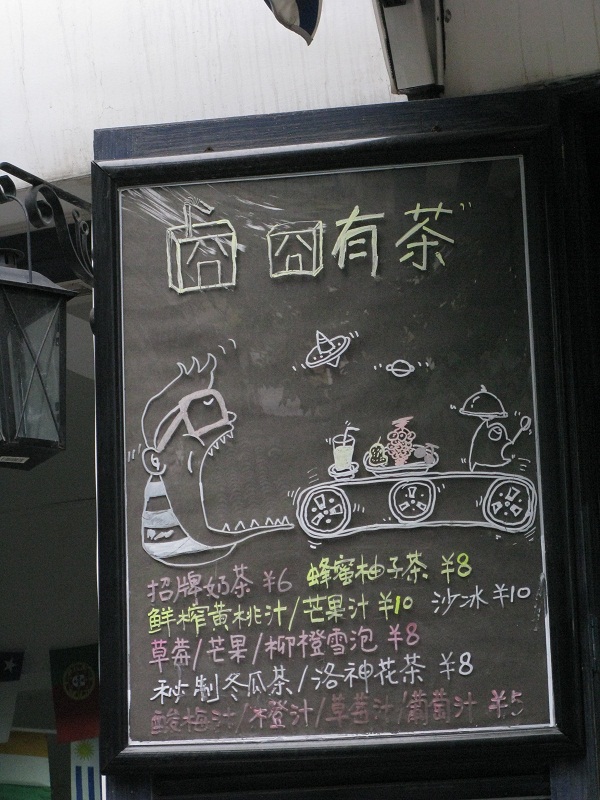 囧囧有茶
招牌奶茶 ¥6 蜂蜜柚子茶 ¥8
鲜榨黄桃汁/芒果汁 ¥10 沙冰 ¥10
草莓/芒果/柳橙雪泡 ¥8
秘制冬瓜茶/洛神花茶 ¥8
酸梅汁/橙汁/草莓汁/葡萄汁 ¥5